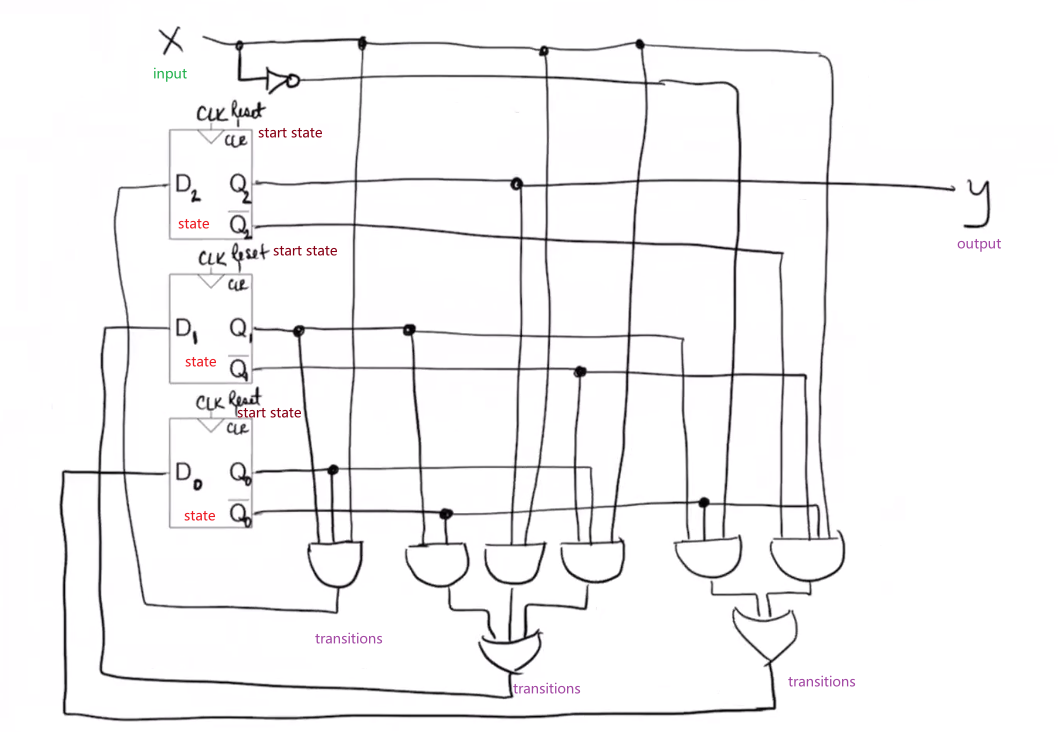 X
input
CLK Reset
CLR
start state
D2 Q2
state Q2
y
output
CLK Reset start state
CLR
D1 Q1
state Q1
CLK Reset
start state
CLR
D0 Q0
state Q0
transitions
transitions
transitions